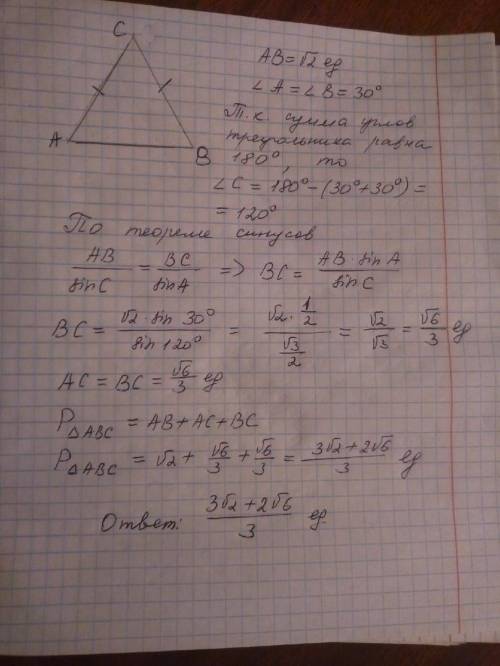 C
A
B
AB = √2 ед
∠A = ∠B = 30°
Т.к. сумма углов
треугольника равна
180°, то
∠C = 180° - (30° + 30°) =
= 120°
По теореме синусов
AB/sin C = BC/sin A => BC = AB · sin A/sin C
BC = √2 · sin 30°/sin 120° = (√2 · 1/2)/(√3/2) = √2/√3 = √6/3 ед
AC = BC = √6/3 ед
P△ABC = AB + AC + BC
P△ABC = √2 + √6/3 + √6/3 = (3√2 + 2√6)/3 ед
Ответ: (3√2 + 2√6)/3 ед.